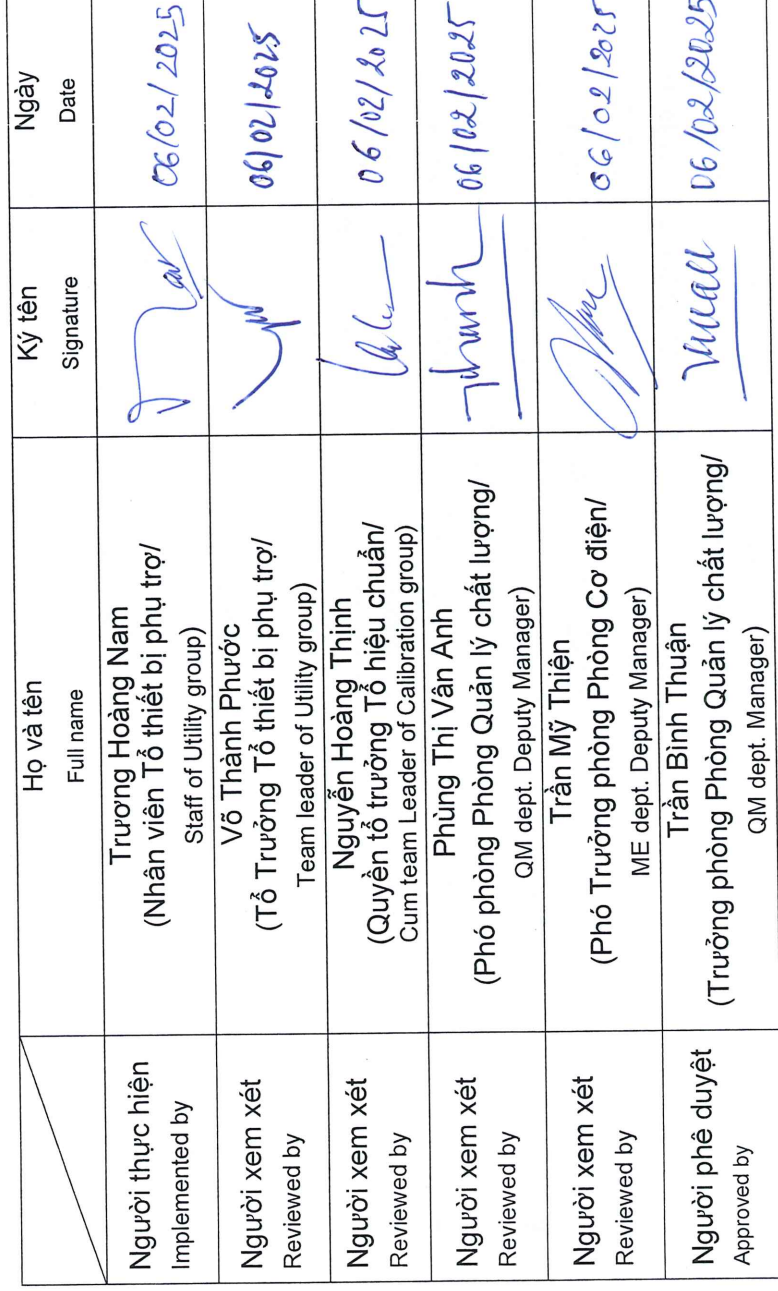 Họ và tên
Full name
Ký tên
Signature
Ngày
Date
Người thực hiện
Implemented by
Trương Hoàng Nam
(Nhân viên Tổ thiết bị phụ trợ/
Staff of Utility group)
06/02/2025
Người xem xét
Reviewed by
Võ Thành Phước
(Tổ Trưởng Tổ thiết bị phụ trợ/
Team leader of Utility group)
06/02/2025
Người xem xét
Reviewed by
Nguyễn Hoàng Thịnh
(Quyền tổ trưởng Tổ hiệu chuẩn/
Cum team Leader of Calibration group)
06/02/2025
Người xem xét
Reviewed by
Phùng Thị Vân Anh
(Phó phòng Phòng Quản lý chất lượng/
QM dept. Deputy Manager)
06/02/2025
Người xem xét
Reviewed by
Trần Mỹ Thiện
(Phó Trưởng phòng Phòng Cơ điện/
ME dept. Deputy Manager)
06/02/2025
Người phê duyệt
Approved by
Trần Bình Thuận
(Trưởng phòng Phòng Quản lý chất lượng/
QM dept. Manager)
06/02/2025